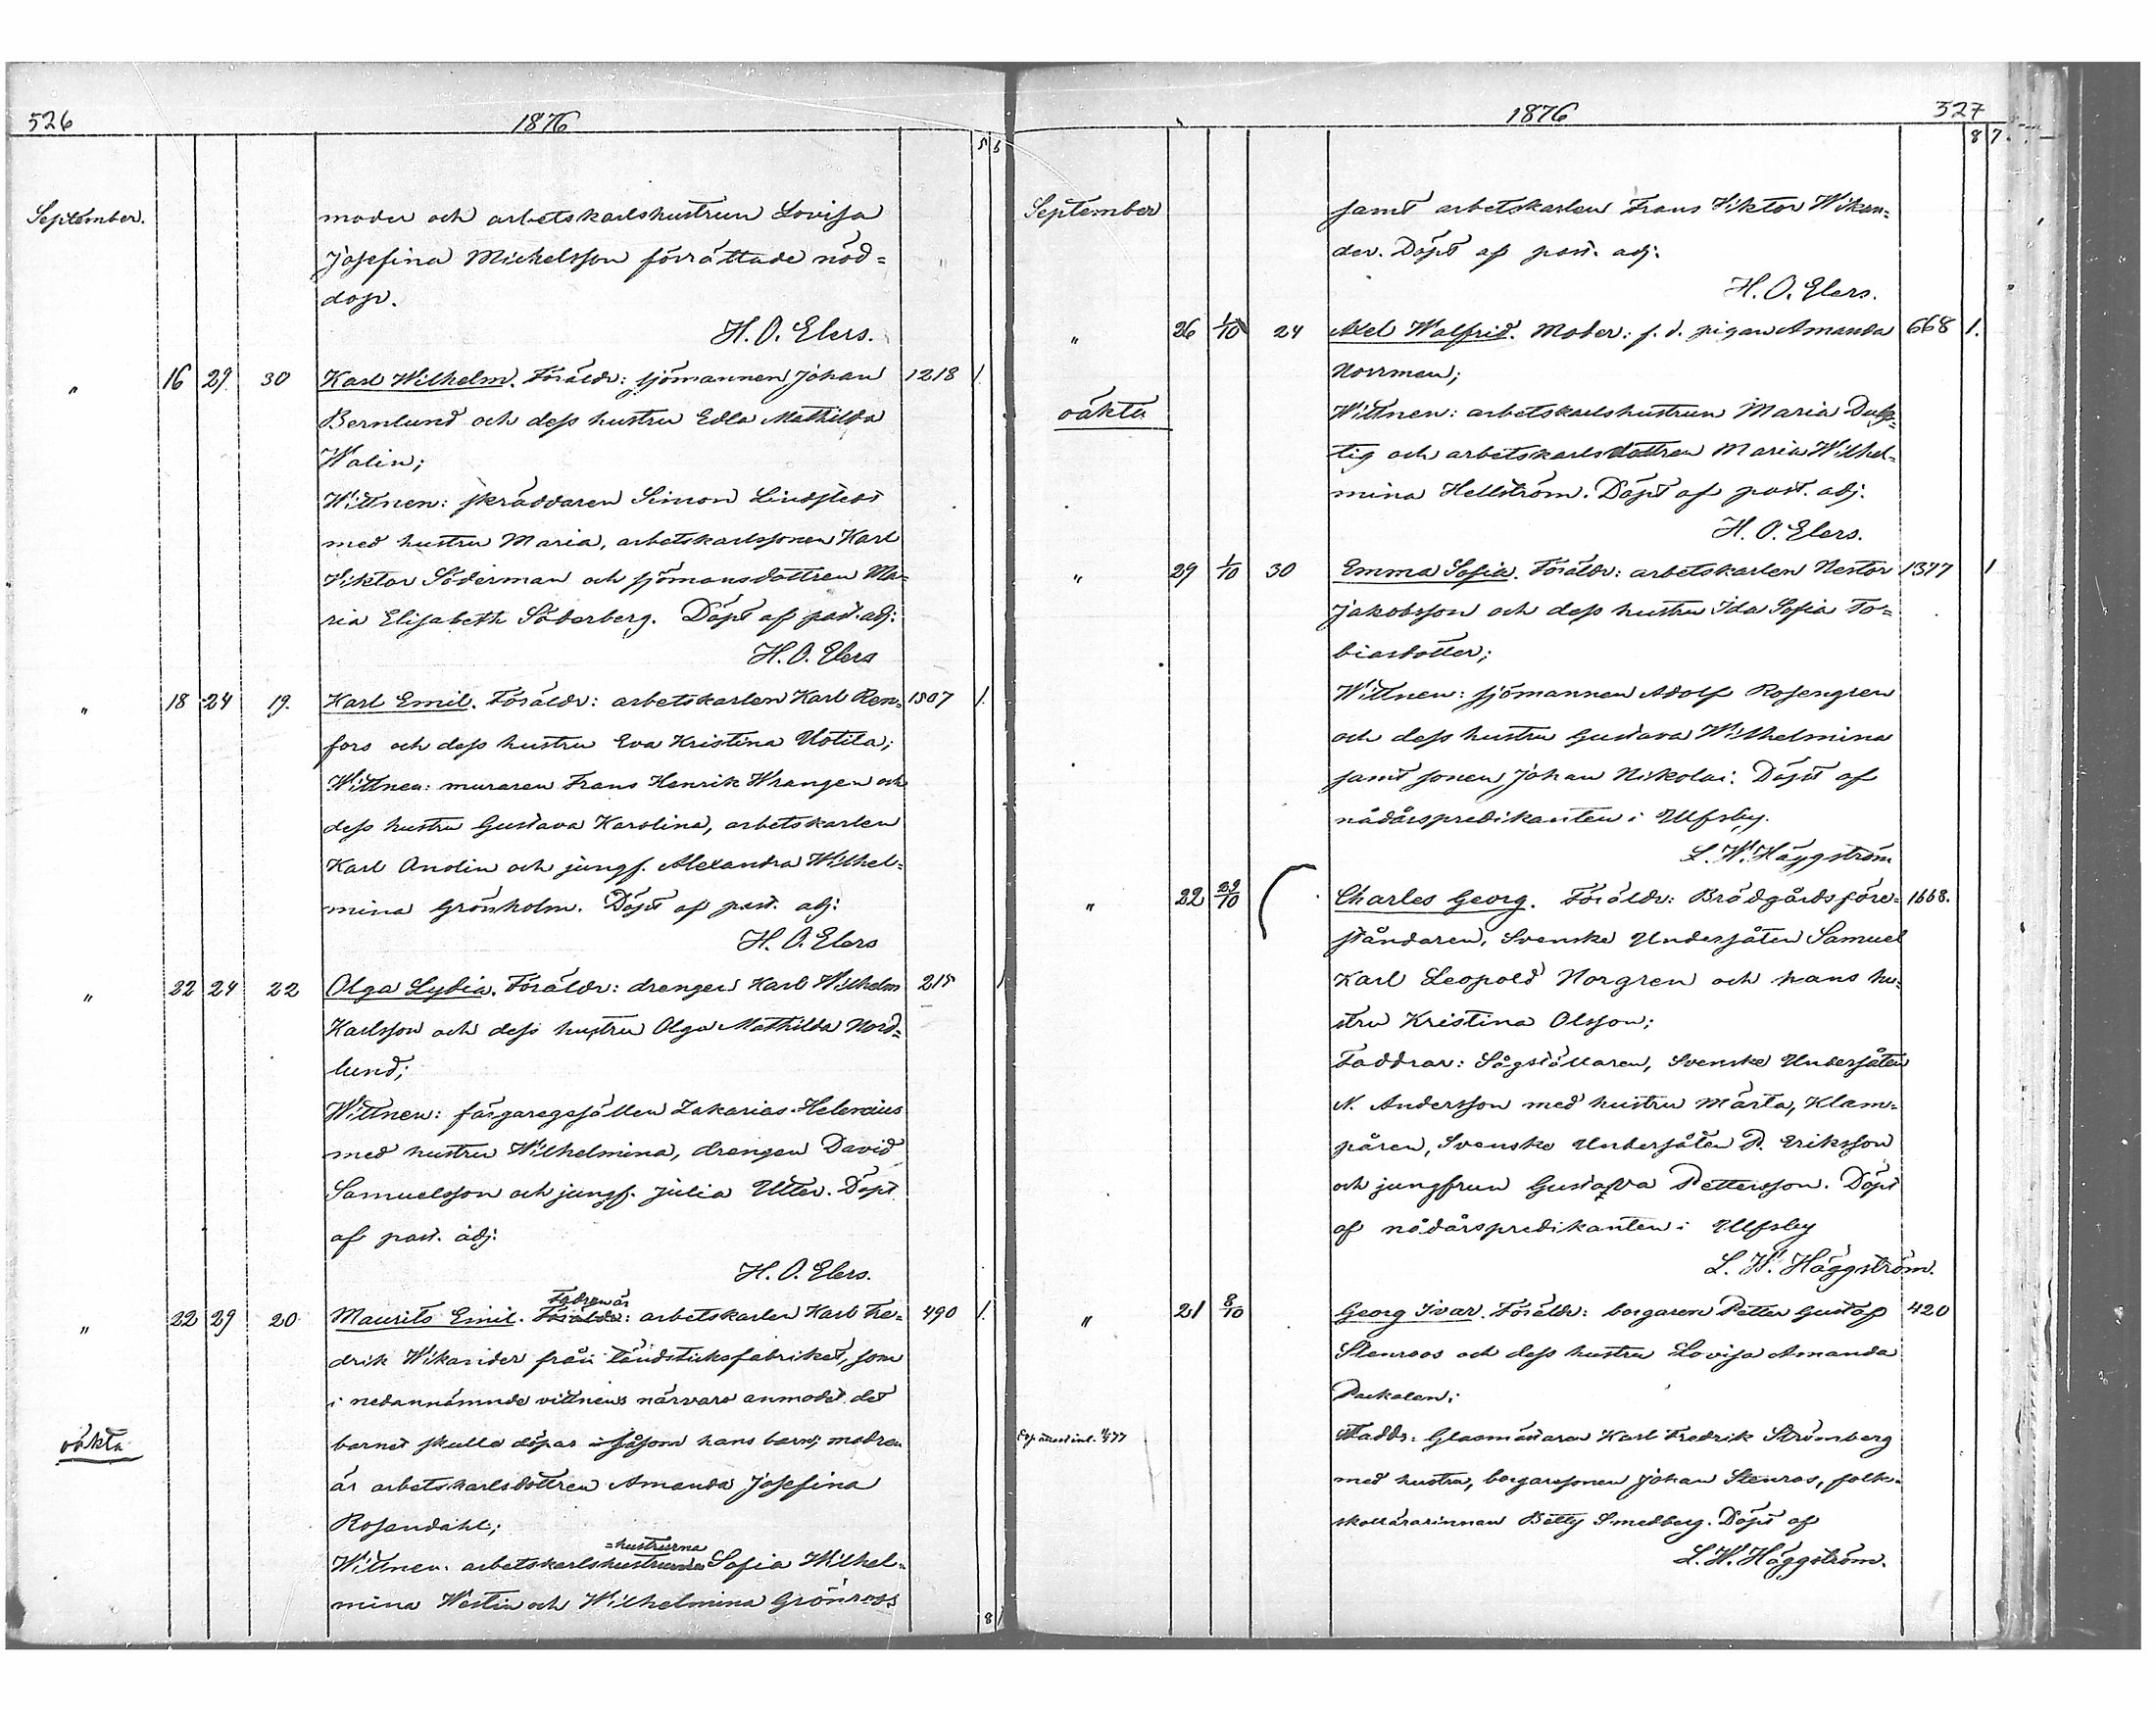 526 1876
5 6
September. moder och arbetskarlshustrun Lovisa
Josefina Mickelsson förrättade nöd=
dop.
H. O. Elers.
" 16 29 30 Karl Wilhelm. Föräldr: sjömannen Johan 1218 1.
Bernlund och dess hustru Edla Mathilda
Walin;
Wittnen: skräddaren Simon Lindstedt
med hustru Maria, arbetskarlssonen Karl
Viktor Söderman och sjömansdottren Ma=
ria Elisabeth Söderberg. Döpt af past. adj.
H. O. Elers
" 18 24 19. Karl Emil. Föräldr: arbetskarlen Karl Ren= 1507 1.
fors och dess hustru Eva Kristina Uotila;
Wittnen: muraren Frans Henrik Wrangen och
dess hustru Gustava Karolina, arbetskarlen
Karl Anolin och jungf. Alexandra Wilhel=
mina Grönholm. Döpt af past. adj:
H. O. Elers
" 22 24 22 Olga Lydia. Föräldr: drengen Karl Wilhelm 215 1
Karlsson och dess hustru Olga Mathilda Nord=
lund;
Wittnen: färgaregesällen Zakarias Helenius
med hustru Wilhelmina, drengen David
Samuelsson och jungf. Julia Utter. Döpt
af past. adj:
H. O. Elers.
Fadren är
" 22 29 20 Maurits Emil. Föräldr: arbetskarlen Karl Fre= 490 1.
drik Wikander från tändsticksfabriket, som
i nedannämnde vittnens närvaro anmodat det
barnet skulle döpas såsom hans barn; modren
oäkta är arbetskarlsdottren Amanda Josefina
Rosendahl;
=hustrurna
Wittnen: arbetskarlshustrurna Sofia Wilhel=
mina Westin och Wilhelmina Grönroos
8
1876 527
8 7.
September samt arbetskarlen Frans Viktor Wikan=
der. Döpt af past. adj.
H. O. Elers.
" 26 1/10 24 Axel Walfrid. Moder: f. d. pigan Amanda 668 1.
Norrmen;
oäkta Wittnen: arbetskarlshustrun Maria
tig och arbetskarlsdottren Maria Wilhel=
mina Hellström. Döpt af past. adj.
H. O. Elers.
" 29 1/10 30 Emma Sofia. Föräldr: arbetskarlen Nestor 1377 1
Jakobsson och dess hustru Ida Sofia To=
biasdotter;
Wittnen: sjömannen Adolf Rosengren
och dess hustru Gustava Wilhelmina
samt sonen Johan Nikolai. Döpt af
nådårspredikanten i Ulfsby.
L. W. Häggström
" 22 29/10 Charles Georg. Föräldr: Brädgårdsföre= 1668.
ståndaren, Svenske Undersåten Samuel
Karl Leopold Norgren och hans hu=
stru Kristina Olsson;
Faddrar: Sågställaren, Svenske Undersåten
N. Andersson med hustru Märta, Klam=
paren, Svenske Undersåten P. Eriksson
och jungfrun Gustafva Pettersson. Döpt
af nådårspredikanten i Ulfsby
L. W. Häggström.
" 21 8/10 Georg Ivar. Föräldr: borgaren Petter Gustaf 420
Stenroos och dess hustru Lovisa Amanda
Packalen;
Faddr: Glasmästaren Karl Fredrik Strömberg
med hustru, borgaresonen Johan Stenros, folk=
skollärarinnan Betty Smedberg. Döpt af
L. W. Häggström.